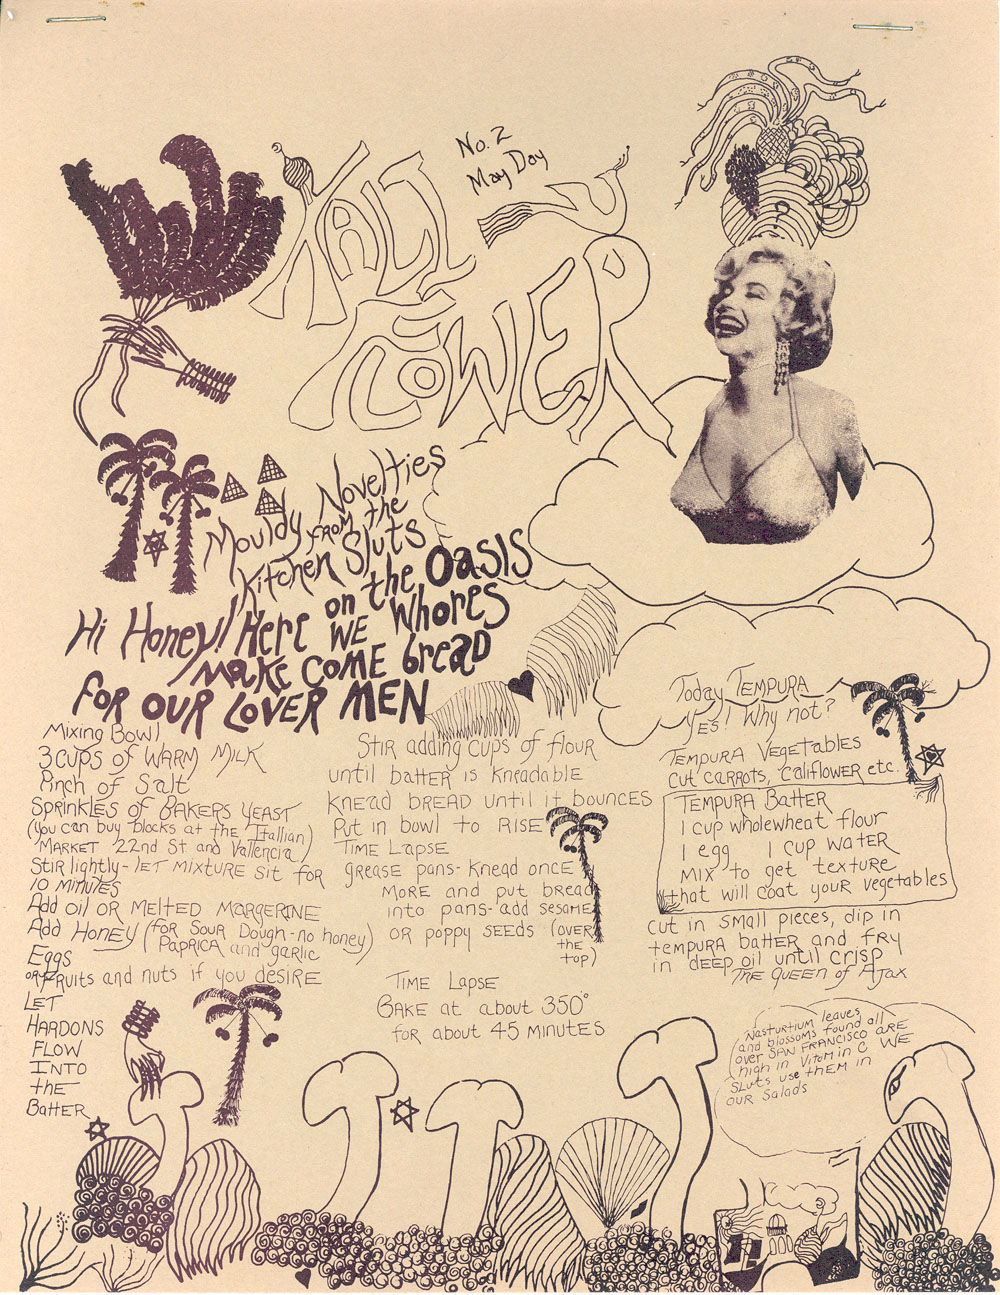 No. 2
May Day
KALIFLOWER
Mouldy Novelties
FROM the
Kitchen Sluts
Hi Honey! Here on the Oasis
WE Whores
MAKE COME bread
FOR OUR LOVER MEN
Mixing Bowl
3 cups of WARM MILK
Pinch of Salt
Sprinkles of BAKERS YEAST
(you can buy blocks at the Itallian)
MARKET 22nd St and Vallencia)
Stir lightly - LET MIXTURE sit for
10 MINUTES
Add oil OR MELTED MARGERINE
Add Honey (FOR SOUR Dough - no honey)
PAPRICA and garlic
Eggs
OR Fruits and nuts if you DESIRE
LET
HARDONS
FLOW
INTO
the
BattER
Stir adding cups of flour
until battER is KneadablE
KNEAd BREAD until it bounces
Put in bowl to RISE
TIME LAPSE
GREASE pans - Knead once
MORE and put bread
into pans - add SESAME
OR poppy SEEDS (OVER
the
top)
TIME LapsE
BAKE at about 350°
for about 45 MINUTES
Today TEMPURA
YES! Why not?
TEMPURA VEGETABLES
CUT CARROTS, CALIFLOWER etc.
TEMPURA BattER
1 cup wholewheat flour
1 egg 1 cup WATER
MIX to get texture
that will coat your vegetables
cut in small pieces, dip in
tempura battER and FRY
in DEEP oil until crisp
The QUEEN of AJAX
NASTURTIUM leaves
and blossoms found all
over SAN FRANCISCO ARE
high in Vitamin C WE
SLUTS USE thEM in
OUR Salads